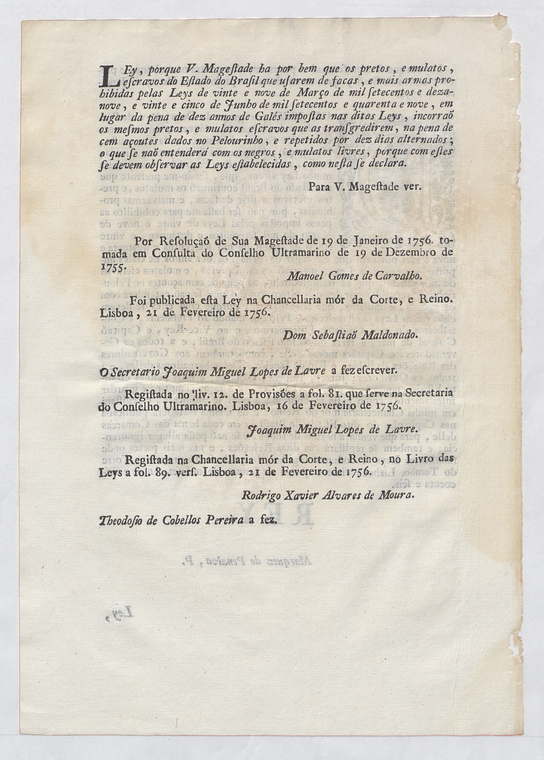 LEy, porque V. Mageſtade ha por bem que os pretos, e mulatos,
eſcravos do Eſtado do Braſil que uſarem de facas, e mais armas pro-
hibidas pelas Leys de vinte e nove de Março de mil ſetecentos e deza-
nove, e vinte e cinco de Junho de mil ſetecentos e quarenta e nove, em
lugar da pena de dez annos de Galés impoſtas nas ditas Leys, incorraõ
os meſmos pretos, e mulatos eſcravos que as tranſgredirem, na pena de
cem açoutes dados no Pelourinho, e repetidos por dez dias alternados;
o que ſe naõ entenderá com os negros, e mulatos livres, porque com eſtes
ſe devem obſervar as Leys eſtabelecidas, como neſta ſe declara.
Para V. Mageſtade ver.
Por Reſoluçaõ de Sua Mageſtade de 19 de Janeiro de 1756. to-
mada em Conſulta do Conſelho Ultramarino de 19 de Dezembro de
1755.
Manoel Gomes de Carvalho.
Foi publicada eſta Ley na Chancellaria mór da Corte, e Reino.
Lisboa, 21 de Fevereiro de 1756.
Dom Sebaſtiaõ Maldonado.
O Secretario Joaquim Miguel Lopes de Lavre a fez eſcrever.
Regiſtada no liv. 12. de Proviſões a fol. 81. que ſerve na Secretaria
do Conſelho Ultramarino. Lisboa, 16 de Fevereiro de 1756.
Joaquim Miguel Lopes de Lavre.
Regiſtada na Chancellaria mór da Corte, e Reino, no Livro das
Leys a fol. 89. verſ. Lisboa, 21 de Fevereiro de 1756.
Rodrigo Xavier Alvares de Moura.
Theodoſio de Cobellos Pereira a fez.